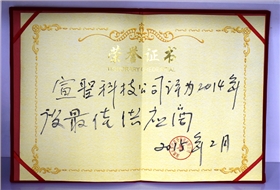 荣誉证书
宣翌科技公司评为2014年
放最佳供应商
2015年2月